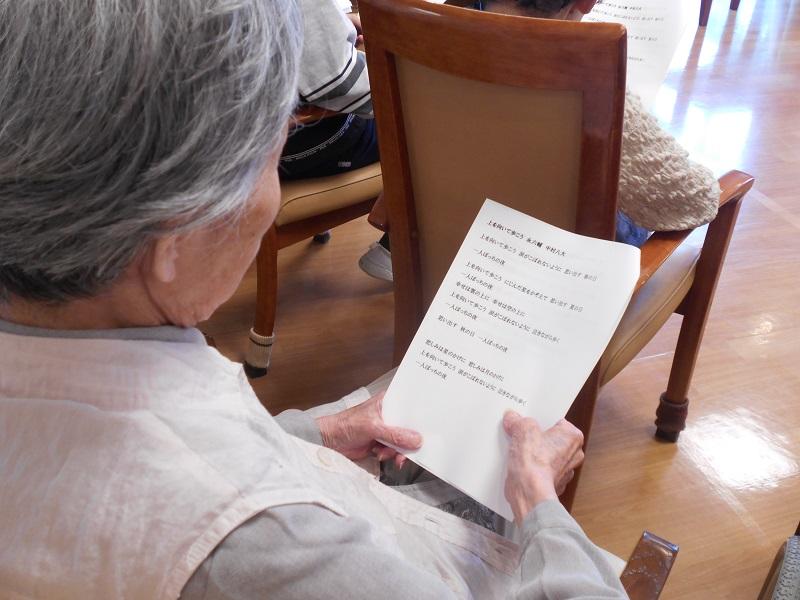 上を向いて歩こう 永六輔 中村八大
上を向いて歩こう 涙がこぼれないように 思い出す 春の日
一人ぼっちの夜
上を向いて歩こう にじんだ星をかぞえて 思い出す 夏の日
一人ぼっちの夜
幸せは雲の上に 幸せは空の上に
上を向いて歩こう 涙がこぼれないように 泣きながら歩く
一人ぼっちの夜
思い出す 秋の日 一人ぼっちの夜
悲しみは星のかげに 悲しみは月のかげに
上を向いて歩こう 涙がこぼれないように 泣きながら歩く
一人ぼっちの夜